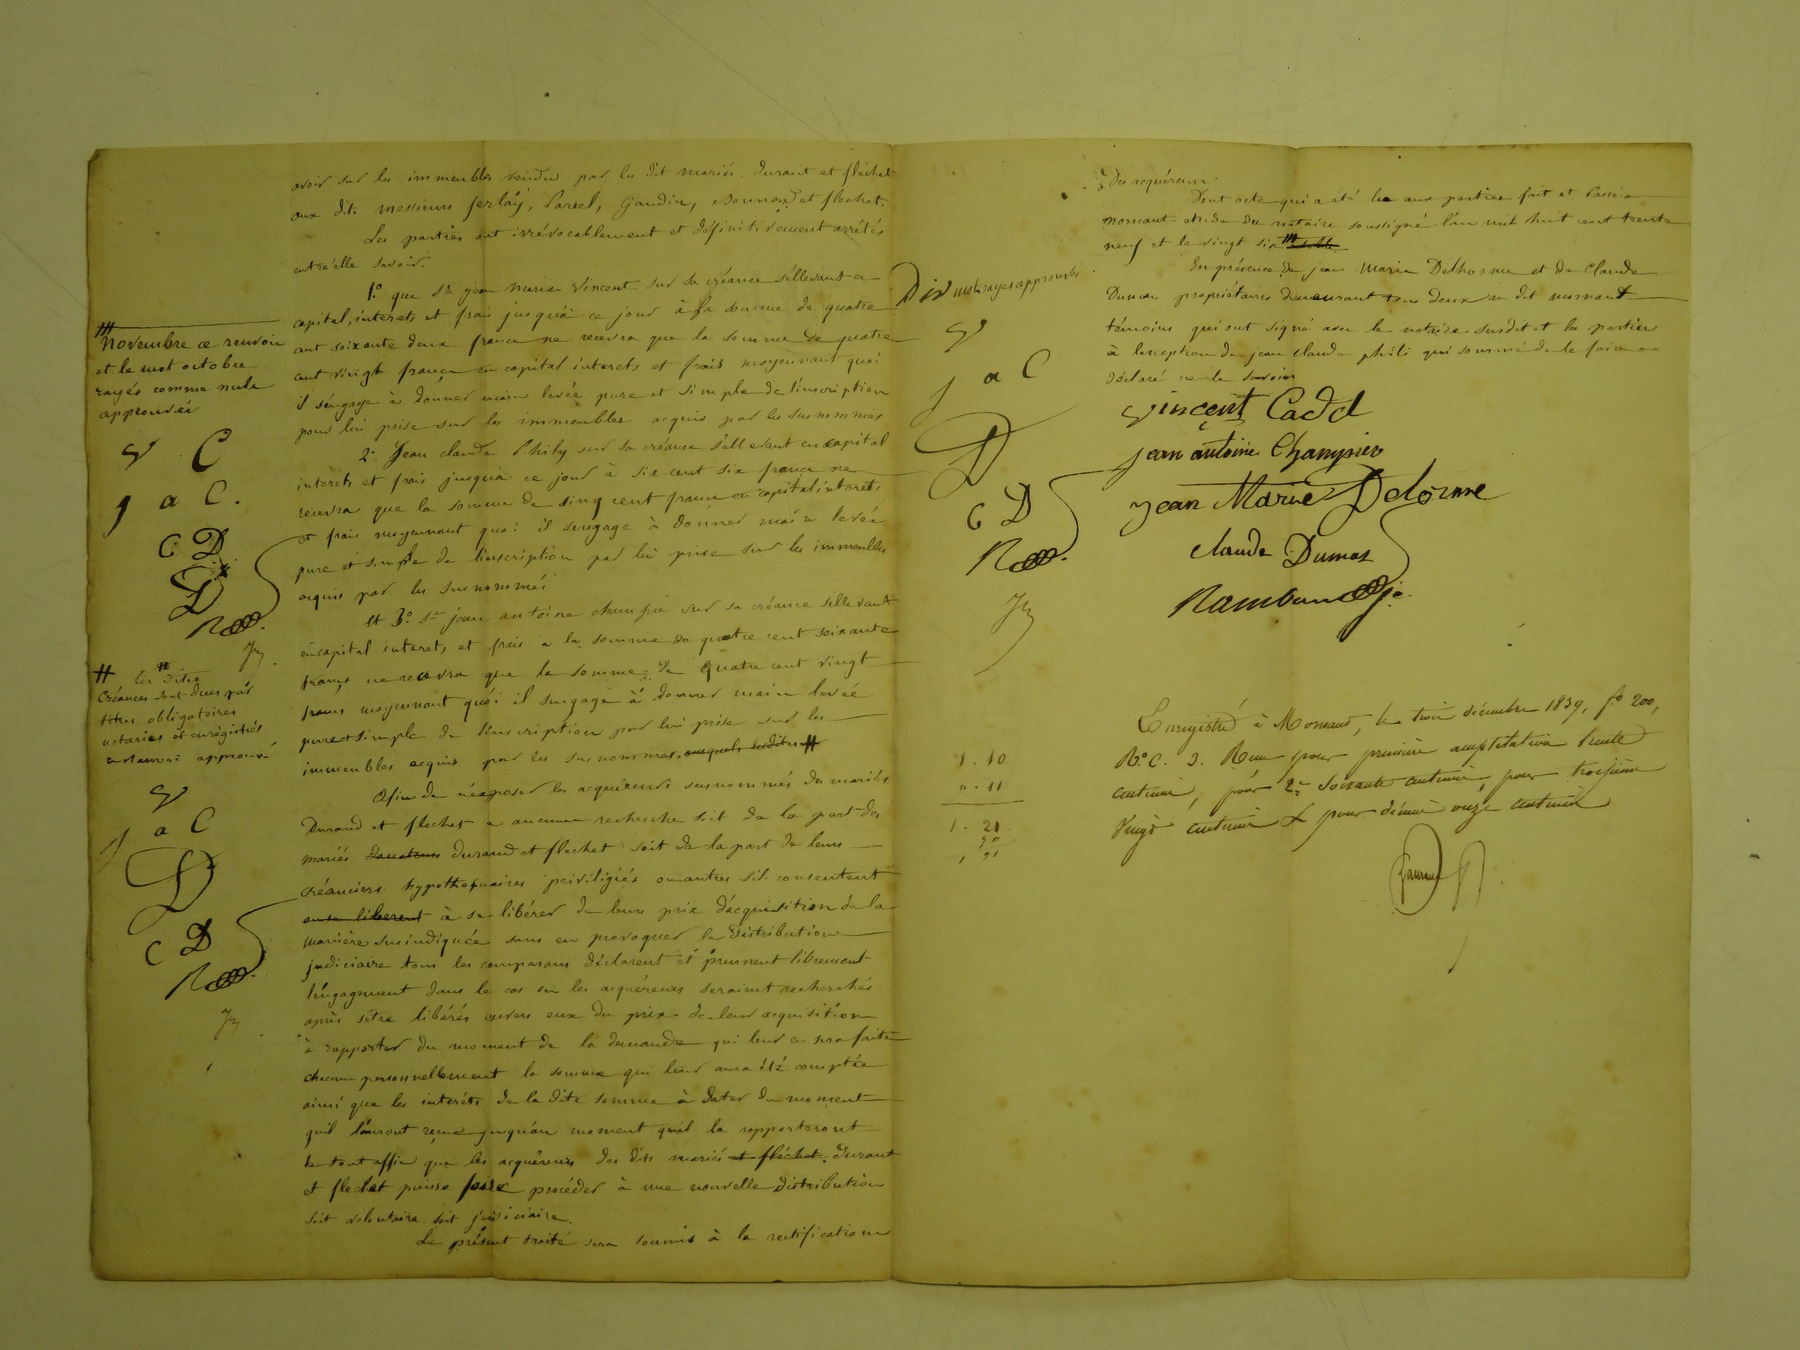 avoir sur les immeubles vendu par les dit mariés Durant et fléchet
aux dits messieurs ferlay, Parsel, Gaudin, et fléchet.
Les parties ont irrévocablement et définitivement arrêtés
entre'elle savoir.
1º que Sr jean marie Vincent sur sa créance s'éllevant en
capital, interets et frais jusqu'à ce jour à la somme de quatre
cent soixante deux francs ne recevra que la somme de quatre
cent vingt francs en capital interets et frais moyennant quoi
il s'éngage à donner main levée pure et simple de l'inscription
pour lui prise sur les immeubles acquis par les susnommés
2º. Jean claude Phily sur sa créance s'ellevant en capital
interets et frais jusqu'à ce jour à six cent six francs ne
recevra que la somme de cinq cent francs en capital interets
et frais moyennant quoi il sengage à donner main levée
pure et simple de l'inscription par lui prise sur les immeubles
acquis par les susnommés
et 3º sr jean antoine champié sur sa créance sellevant
en capital interets et frais a la somme de quatre cent soixante
francs ne recevra que la somme de quatre cent vingt
francs moyennant quoi il sengage à donner main levée
pure et simple de l'inscription par lui prise sur les
immeubles acquis par les susnommés. auxquels lesdites #
Afin de n'éxposer les acquéreurs susnommés des mariés
Durand et flechet a aucune recherche soit de la part des
mariés durand et flechet soit de la part de leurs
créanciers hypothequaires priviligiés ou autres s'il consentent
ou se liberent à se libérer de leurs prix d'acquisition de la
manière susindiquée sans en provoquer la distribution
judiciaire tous les comparans déclarent et prennent librement
l'éngagement dans le cas ou les acquéreurs seraient recherchés
après s'être libérés envers eux du prix de leur acquisition
à rapporter du moment de la demande qui leur en sra faite
chacun personnellement la somme qui leur aura été comptée
ainsi que les interéts de la dite somme à dater du moment
quil l'auront reçue jusqu'au moment quil la rapporteront
le tout affin que les acquéreurs des dits mariés et fléchet. Durant
et flechet puisse faire procéder à une nouvelle distribution
soit volontaire soit judiciaire.
Le présent traité sera soumis à la rectification
novembre ce renvoi
et le mot octobre
rayés comme nuls
approuvés
V C
j a C.
C D
D
R
# les dites
créances sont dues par
titres obligatoires
notariés et enrégistrés
approuvé
V
j a C
D
C D
R
Des acquéreurs
Dont acte qui a été lu aux parties fait et Passé a
mornant etude du notaire soussigné l'an mil huit cent trente
neuf et le vingt six
En présence de jean Marie Delhorme et de Claude
Dumas propriétaires demeurant tous deux au dit mornant
témoins qui ont signé avec le notaire susdit et les parties
à lexception de jean claude phili qui sommé de le faire a
déclaré ne le savoir
Dix mots rayés approuvés
V
j a C
D
C D
R
vincent Cadd
jean antoine Champier
jean Marie Delorme
claude Dumas
Enregistré à Mornant, le trois décembre 1839, fº 200,
Rº C. 3. Reçu pour première trente
centimes, pour 2e soixante centimes, pour troisième
vingt centimes & pour décime onze centimes
1. 10
". 11
1. 21